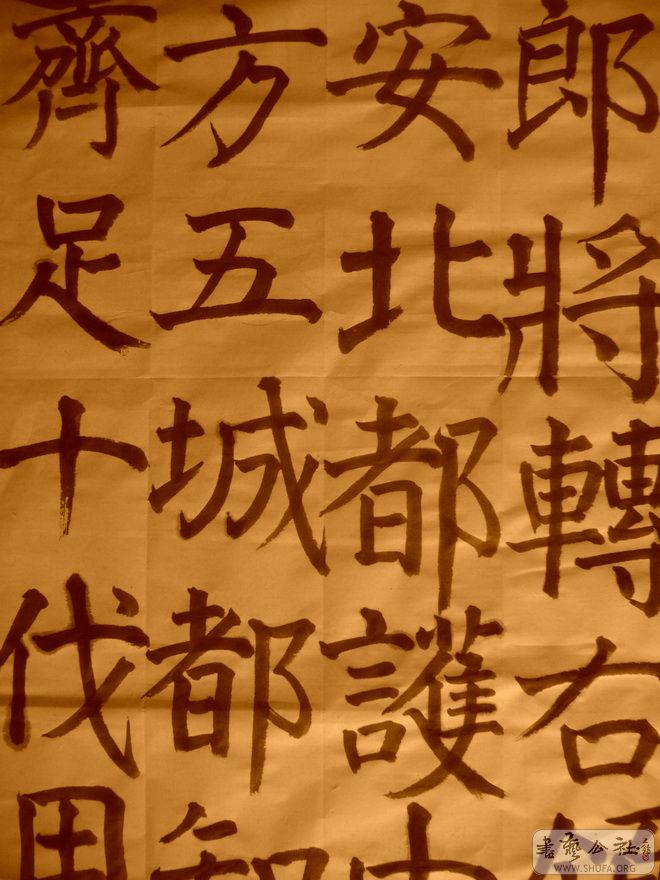 郎將轉右
安北都護
方五城都
齊足十伐
書藝公社
WWW.SHUFA.ORG